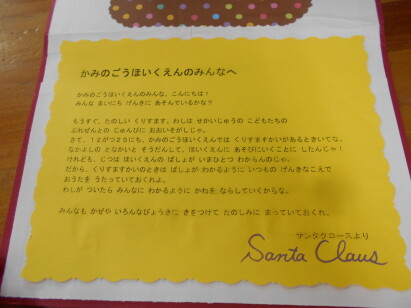 かみのごうほいくえんのみんなへ
かみのごうほいくえんのみんな、こんにちは!
みんな まいにち げんきに あそんでいるかな?
もうすぐ、たのしい くりすます。わしは せかいじゅうの こどもたちの
ぷれぜんとの じゅんびに おおいそがしじゃ。
さて、12がつ25にち、かみのごうほいくえんでは くりすますかいがあるときいてな。
なかよしの となかいと そうだんして、ほいくえんに あそびにいくことに したんじゃ!
けれども、じつは ほいくえんの ばしょが いまひとつ わからんのじゃ。
だから、くりすますかいのときは ばしょが わかるように いつもの げんきなこえで
おうたを うたっていておくれよ。
わしが ついたら みんなに わかるように かねを ならしていくからな。
みんなも かぜや いろんなびょうきに きをつけて たのしみに まっていておくれ。
サンタクロースより
Santa Claus